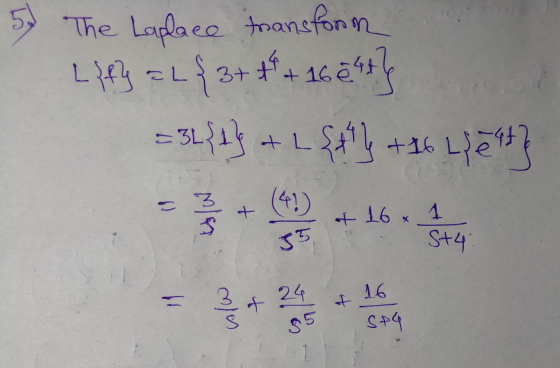 5) The Laplace transform
L{f} = L{ 3 + t⁴ + 16 e⁻⁴ᵗ}
= 3L{1} + L{t⁴} + 16 L{e⁻⁴ᵗ}
= 3/s + (4!)/s⁵ + 16 × 1/(s+4)
= 3/s + 24/s⁵ + 16/(s+4)